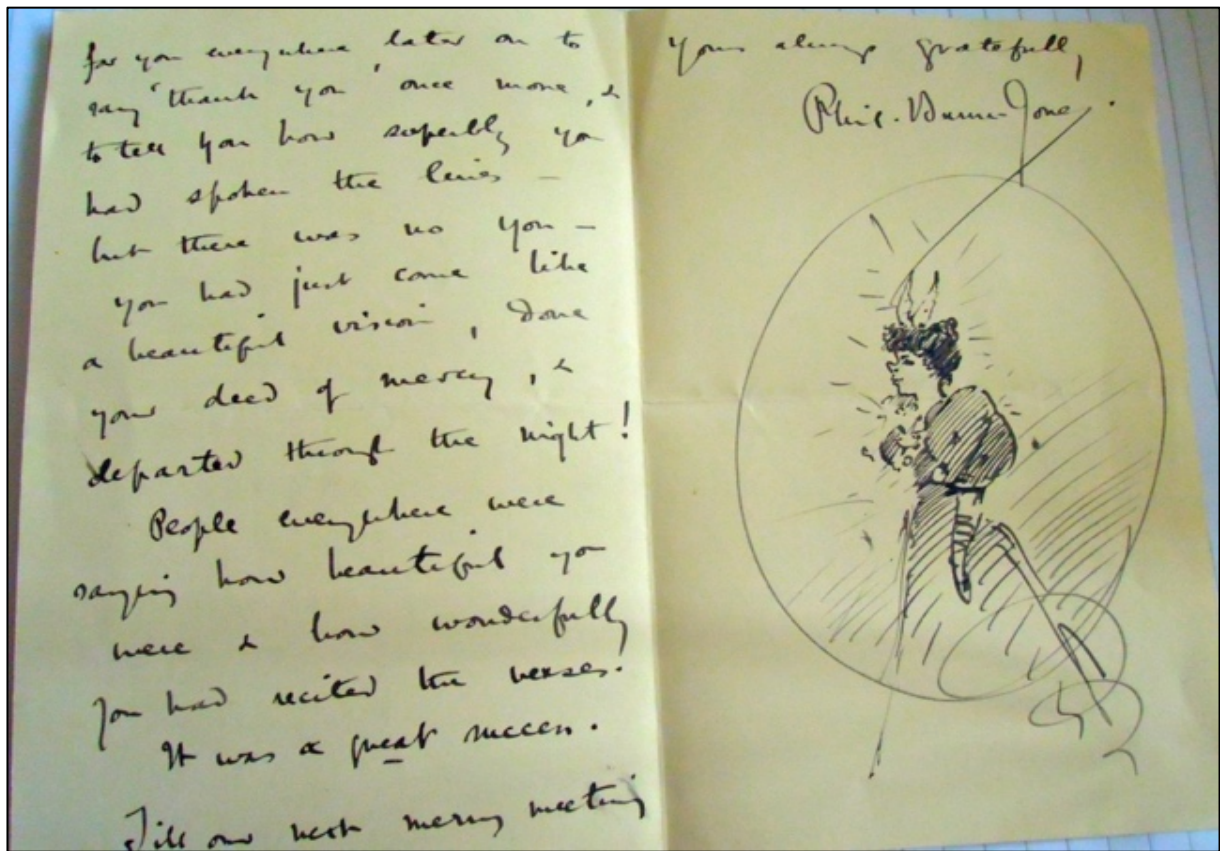 for you everywhere later on to
say "thank you" once more, &
to tell you how superbly you
had spoken the lines –
but there was no you –
you had just come like
a beautiful vision, done
your deed of mercy, &
departed through the night!
People everywhere were
saying how beautiful you
were & how wonderfully
you had recited the verses.
It was a great success.
Till our next merry meeting
yours always gratefully,
Phil. Burne-Jones.